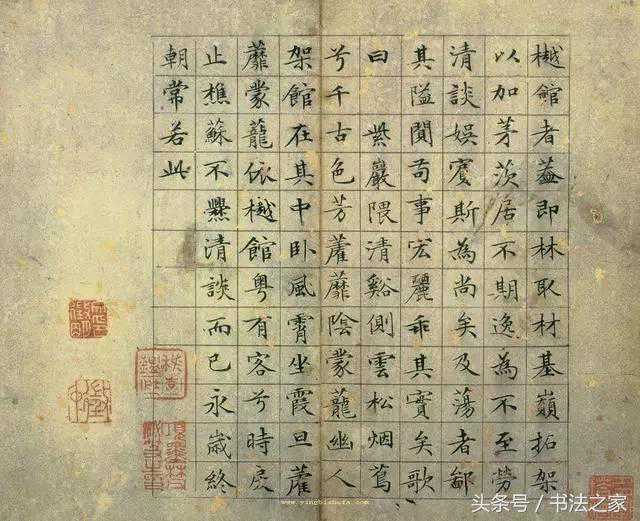 樾館者葢即林取材基巔拓架
以加茅茨居不期逸為不至勞
清談娛賓斯為尚矣及蕩者鄙
其隘闃苟事宏麗乖其實矣歌
曰 紫巖隈清谿側雲松烟蔦
兮千古色芳蘿蘼陰蒙蘢幽人
架館在其中卧風霄坐霞旦蘿
蘼蒙蘢依樾館粵有客兮時戾
止樵蘇不爨清談而已永歲終
朝常若此
www.yingbishufa.com
头条号 / 书法之家